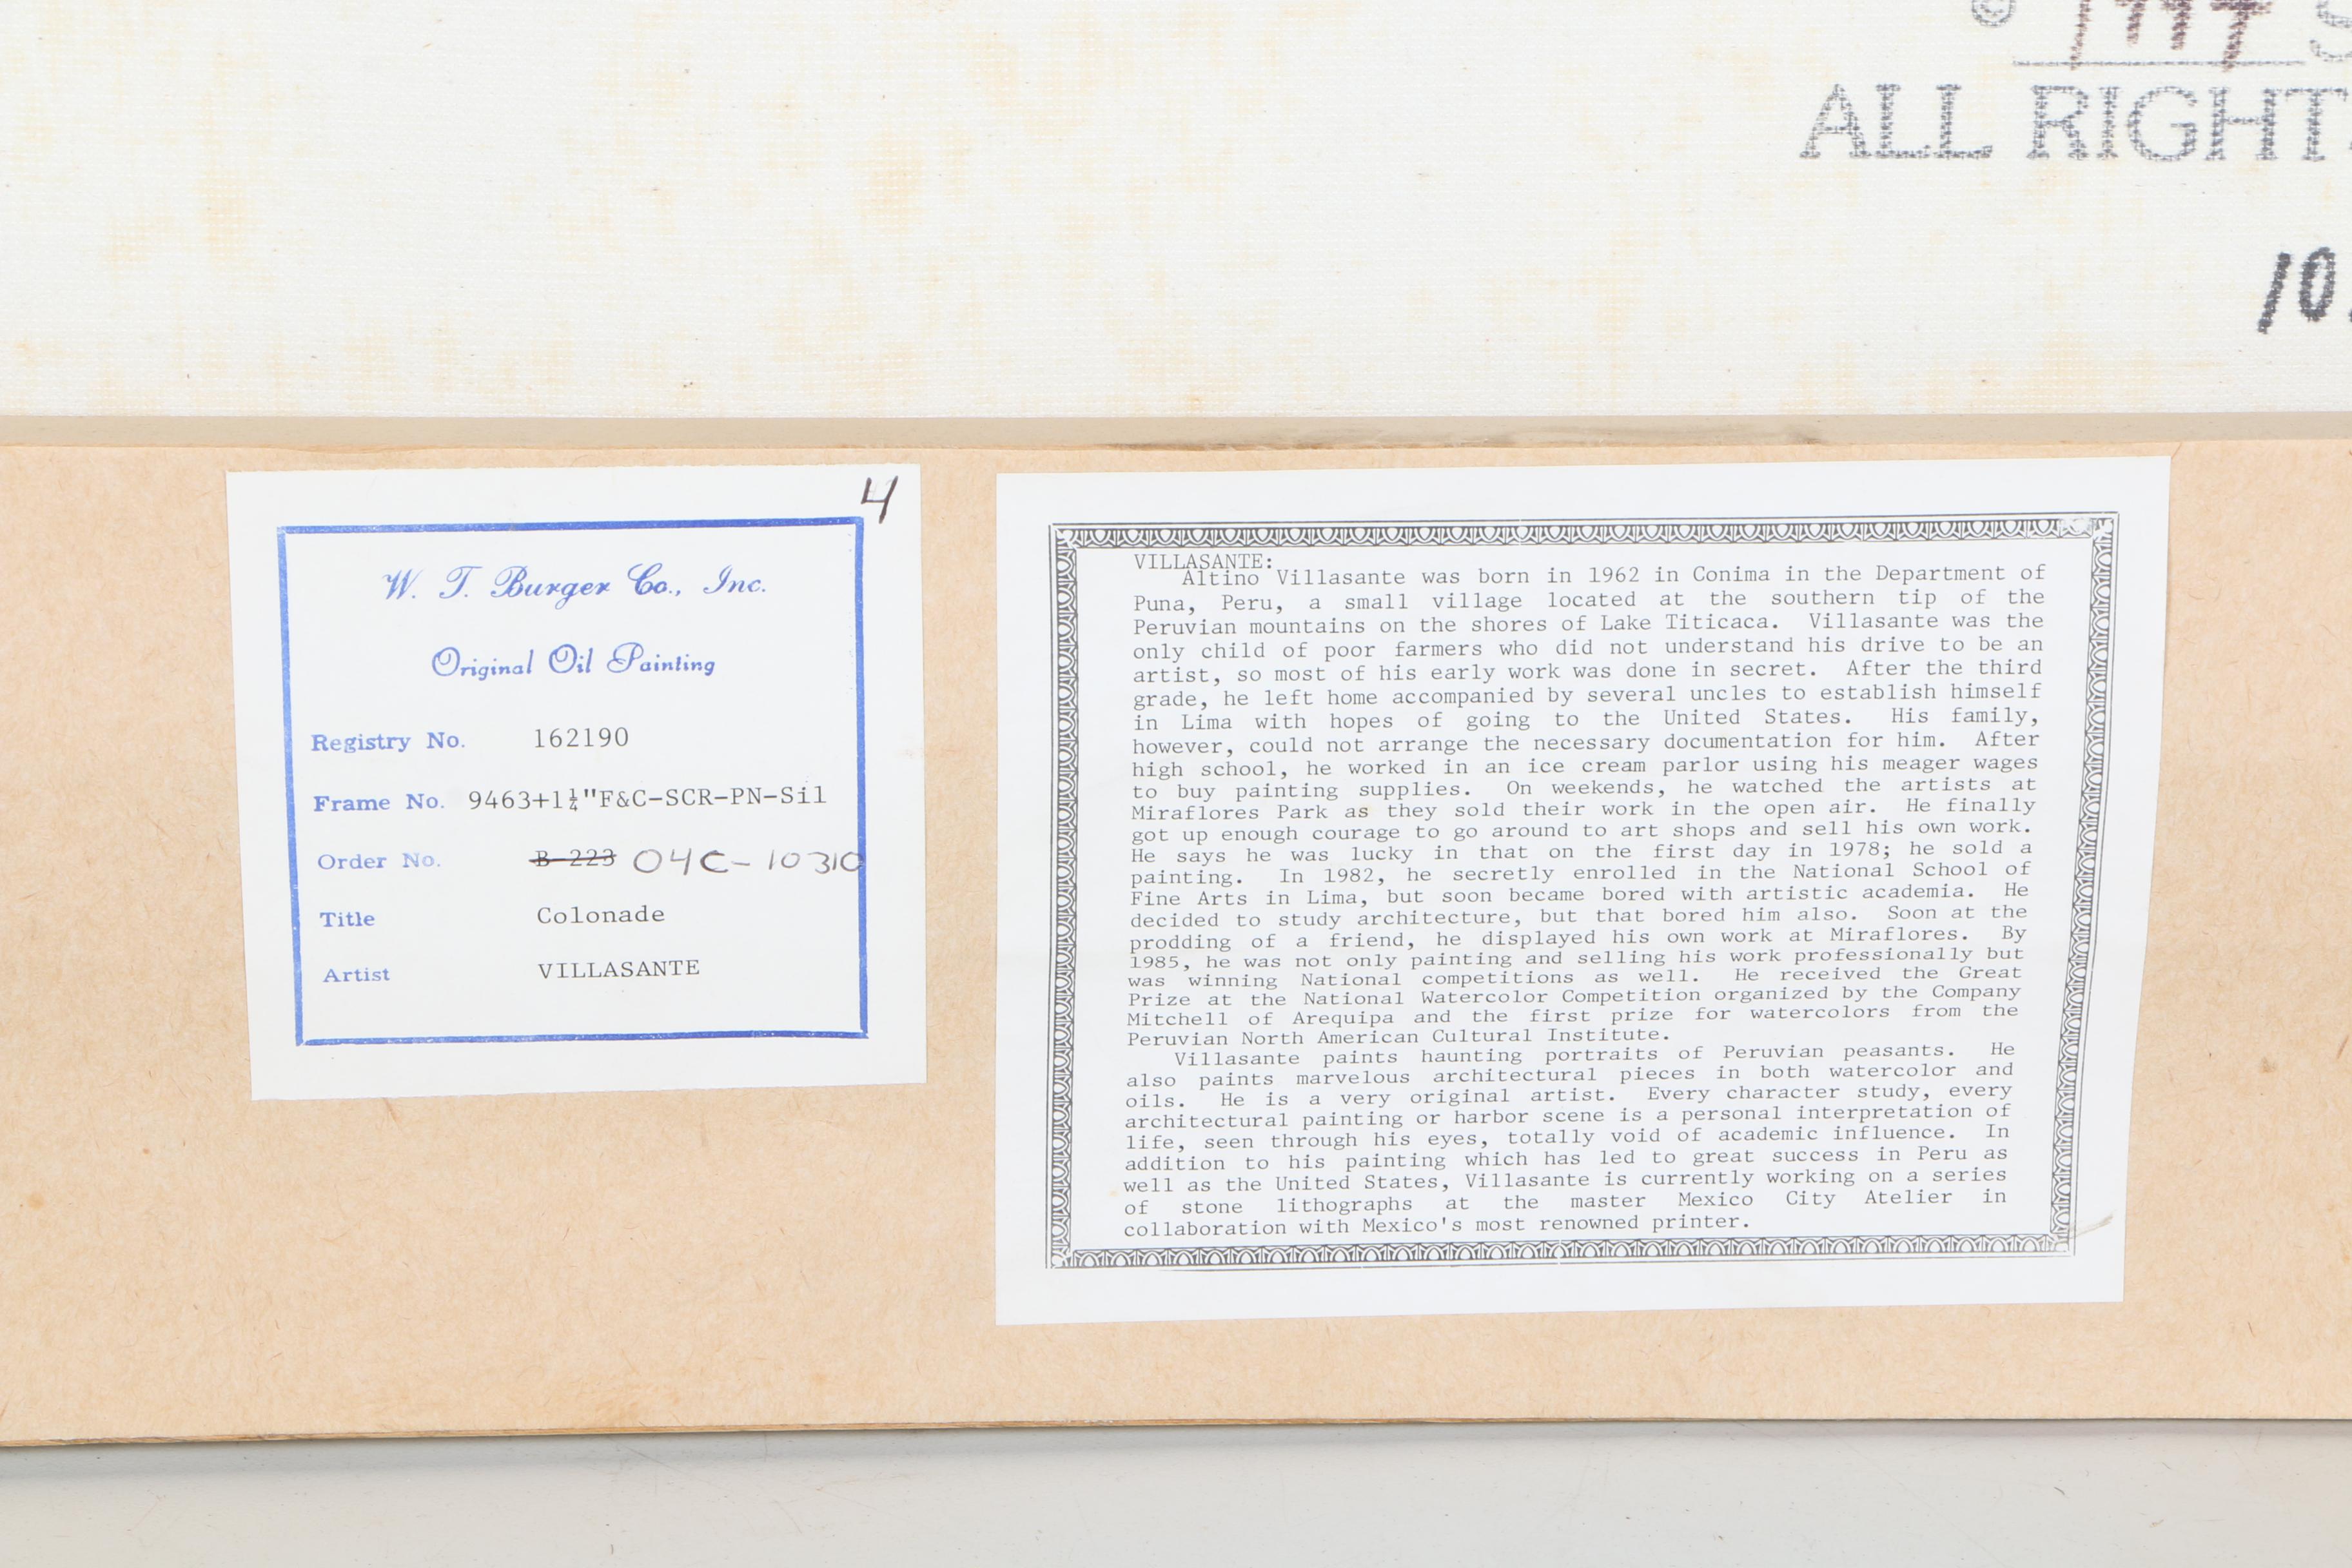 ALL RIGHT
10
4
W. T. Burger Co., Inc.
Original Oil Painting
Registry No. 162190
Frame No. 9463+1¼"F&C-SCR-PN-Sil
Order No. B-223 04C-10310
Title Colonade
Artist VILLASANTE
VILLASANTE:
Altino Villasante was born in 1962 in Conima in the Department of
Puna, Peru, a small village located at the southern tip of the
Peruvian mountains on the shores of Lake Titicaca. Villasante was the
only child of poor farmers who did not understand his drive to be an
artist, so most of his early work was done in secret. After the third
grade, he left home accompanied by several uncles to establish himself
in Lima with hopes of going to the United States. His family,
however, could not arrange the necessary documentation for him. After
high school, he worked in an ice cream parlor using his meager wages
to buy painting supplies. On weekends, he watched the artists at
Miraflores Park as they sold their work in the open air. He finally
got up enough courage to go around to art shops and sell his own work.
He says he was lucky in that on the first day in 1978; he sold a
painting. In 1982, he secretly enrolled in the National School of
Fine Arts in Lima, but soon became bored with artistic academia. He
decided to study architecture, but that bored him also. Soon at the
prodding of a friend, he displayed his own work at Miraflores. By
1985, he was not only painting and selling his work professionally but
was winning National competitions as well. He received the Great
Prize at the National Watercolor Competition organized by the Company
Mitchell of Arequipa and the first prize for watercolors from the
Peruvian North American Cultural Institute.
Villasante paints haunting portraits of Peruvian peasants. He
also paints marvelous architectural pieces in both watercolor and
oils. He is a very original artist. Every character study, every
architectural painting or harbor scene is a personal interpretation of
life, seen through his eyes, totally void of academic influence. In
addition to his painting which has led to great success in Peru as
well as the United States, Villasante is currently working on a series
of stone lithographs at the master Mexico City Atelier in
collaboration with Mexico's most renowned printer.